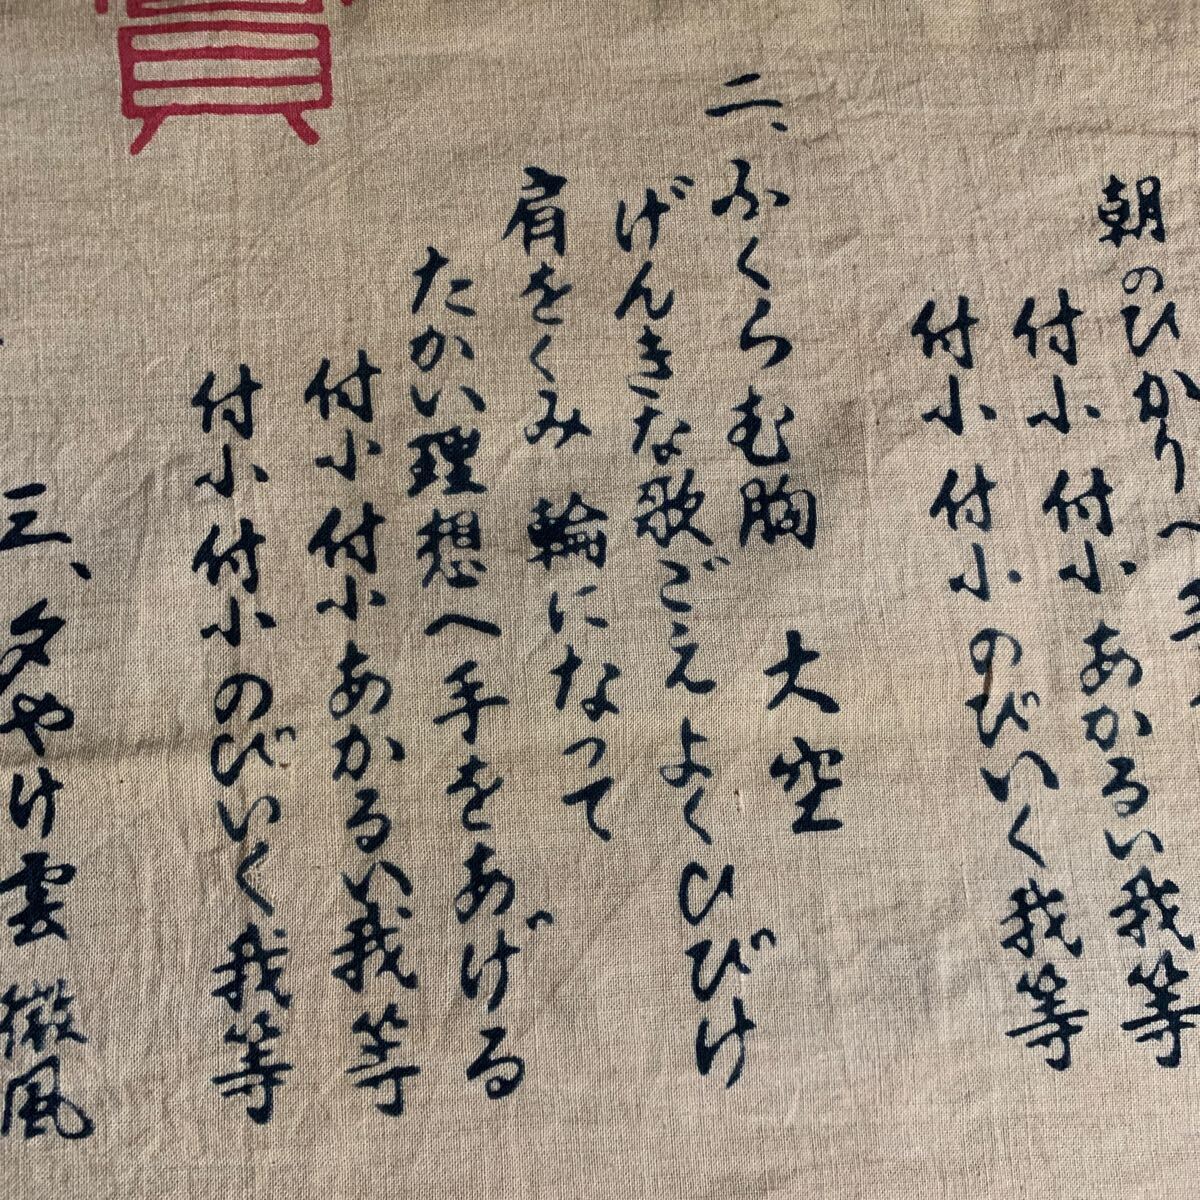 朝のひかりへ
付小 付小 あかるい我等
付小 付小 のびいく我等
二、ふくらむ胸 大空
げんきな歌ごえよくひびけ
肩をくみ 輪になって
たかい理想へ手をあげる
付小 付小 あかるい我等
付小 付小 のびいく我等
三、夕やけ雲 微風